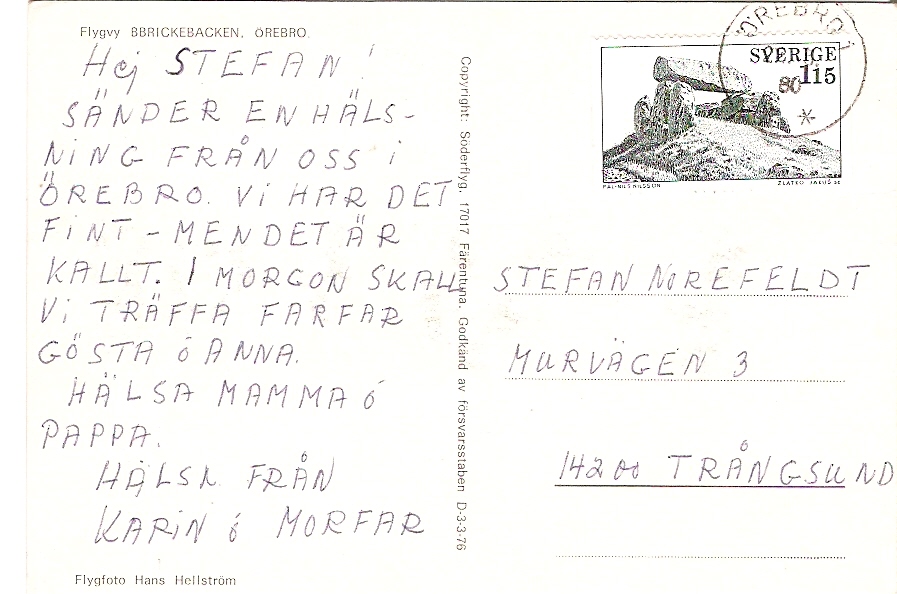 Flygvy BBRICKEBACKEN, ÖREBRO.
Hej STEFAN!
SÄNDER EN HÄLS-
NING FRÅN OSS i
ÖREBRO. Vi HAR DET
FINT - MEN DET ÄR
KALLT. I MORGON SKALL
Vi TRÄFFA FARFAR
GÖSTA ó ANNA.
HÄLSA MAMMA ó
PAPPA.
HÄLSN. FRÅN
KARiN ó MORFAR
Flygfoto Hans Hellström
Copyright: Söderflyg, 17017 Färentuna. Godkänd av försvarsstaben D-3-3-76
ÖREBRO 1
80
SVERIGE
115
PÅL-NILS NILSSON
ZLATKO JAKUŠ SC
STEFAN NOREFELDT
MURVÄGEN 3
14200 TRÅNGSUND